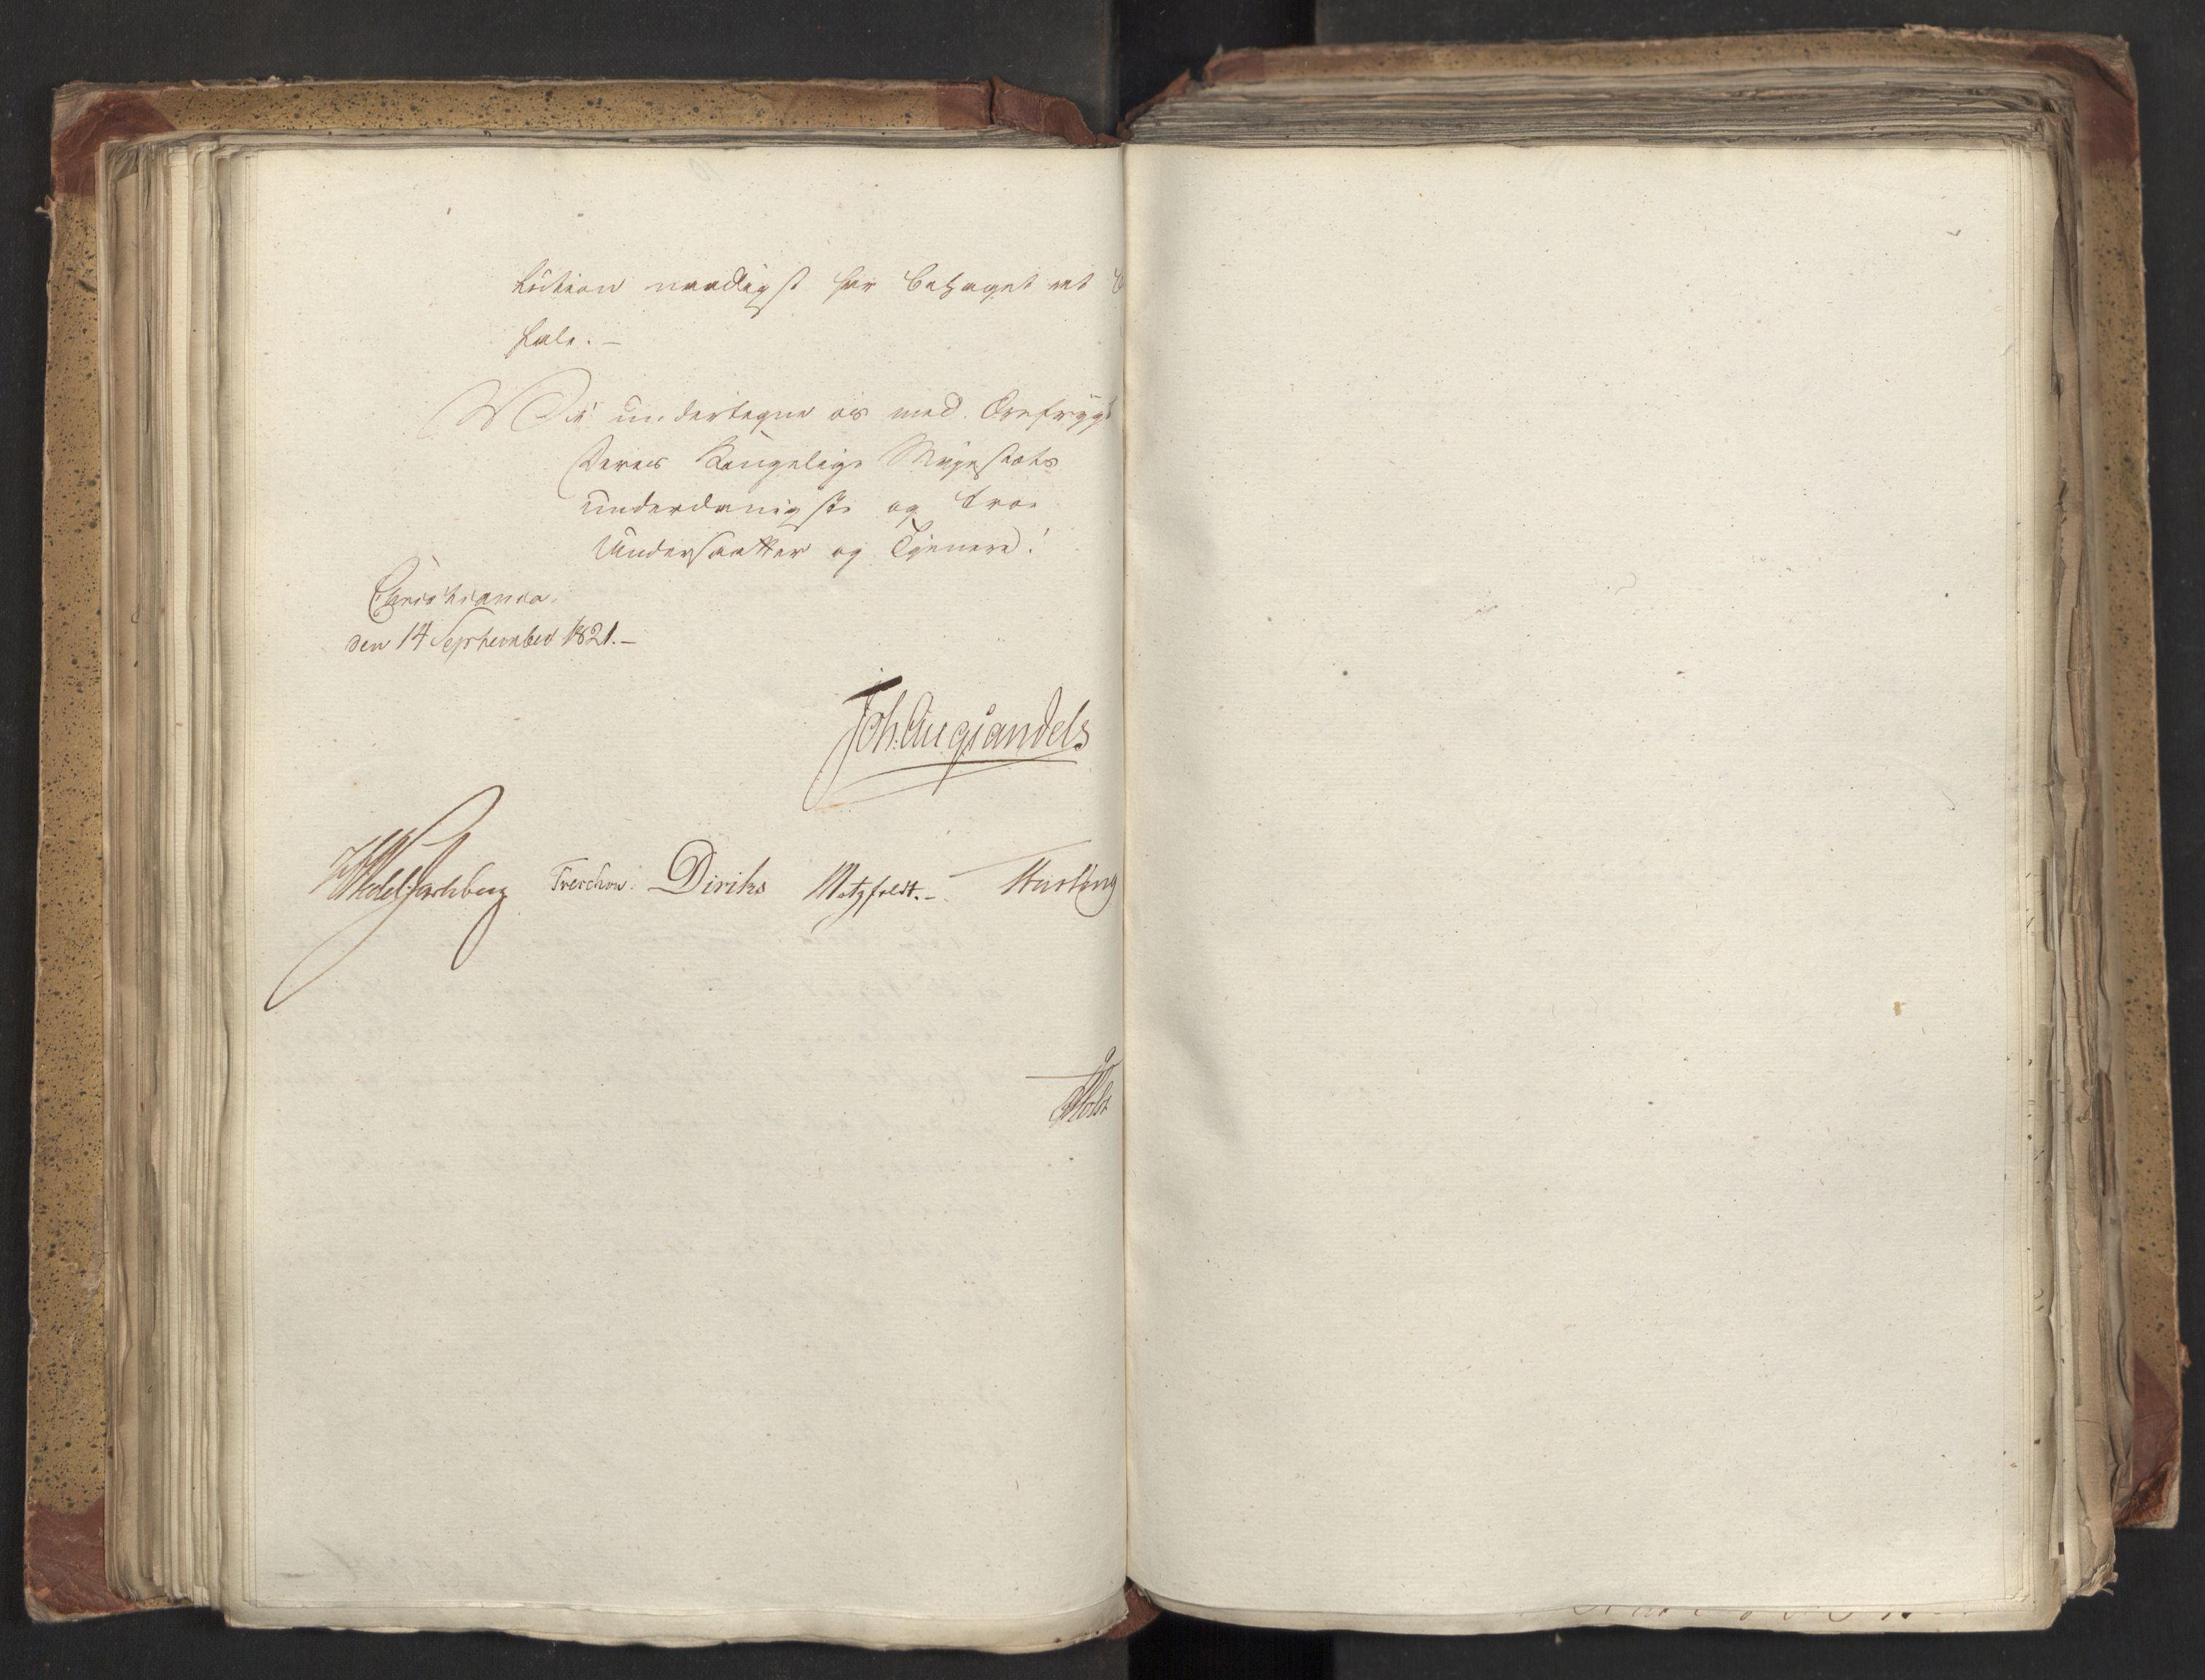 lution naadigst har behaget at b
fale. –
Vi undertegne os med Ærefrygt
Deres Kongelige Majestæts
underdanigste og troe
Undersaatter og Tjenere!
Christiania
den 14 September 1821. –
Joh. Aug Sandels
HWedel Jarlsberg Treschow. Diriks Motzfeldt. – Krebs
Holst